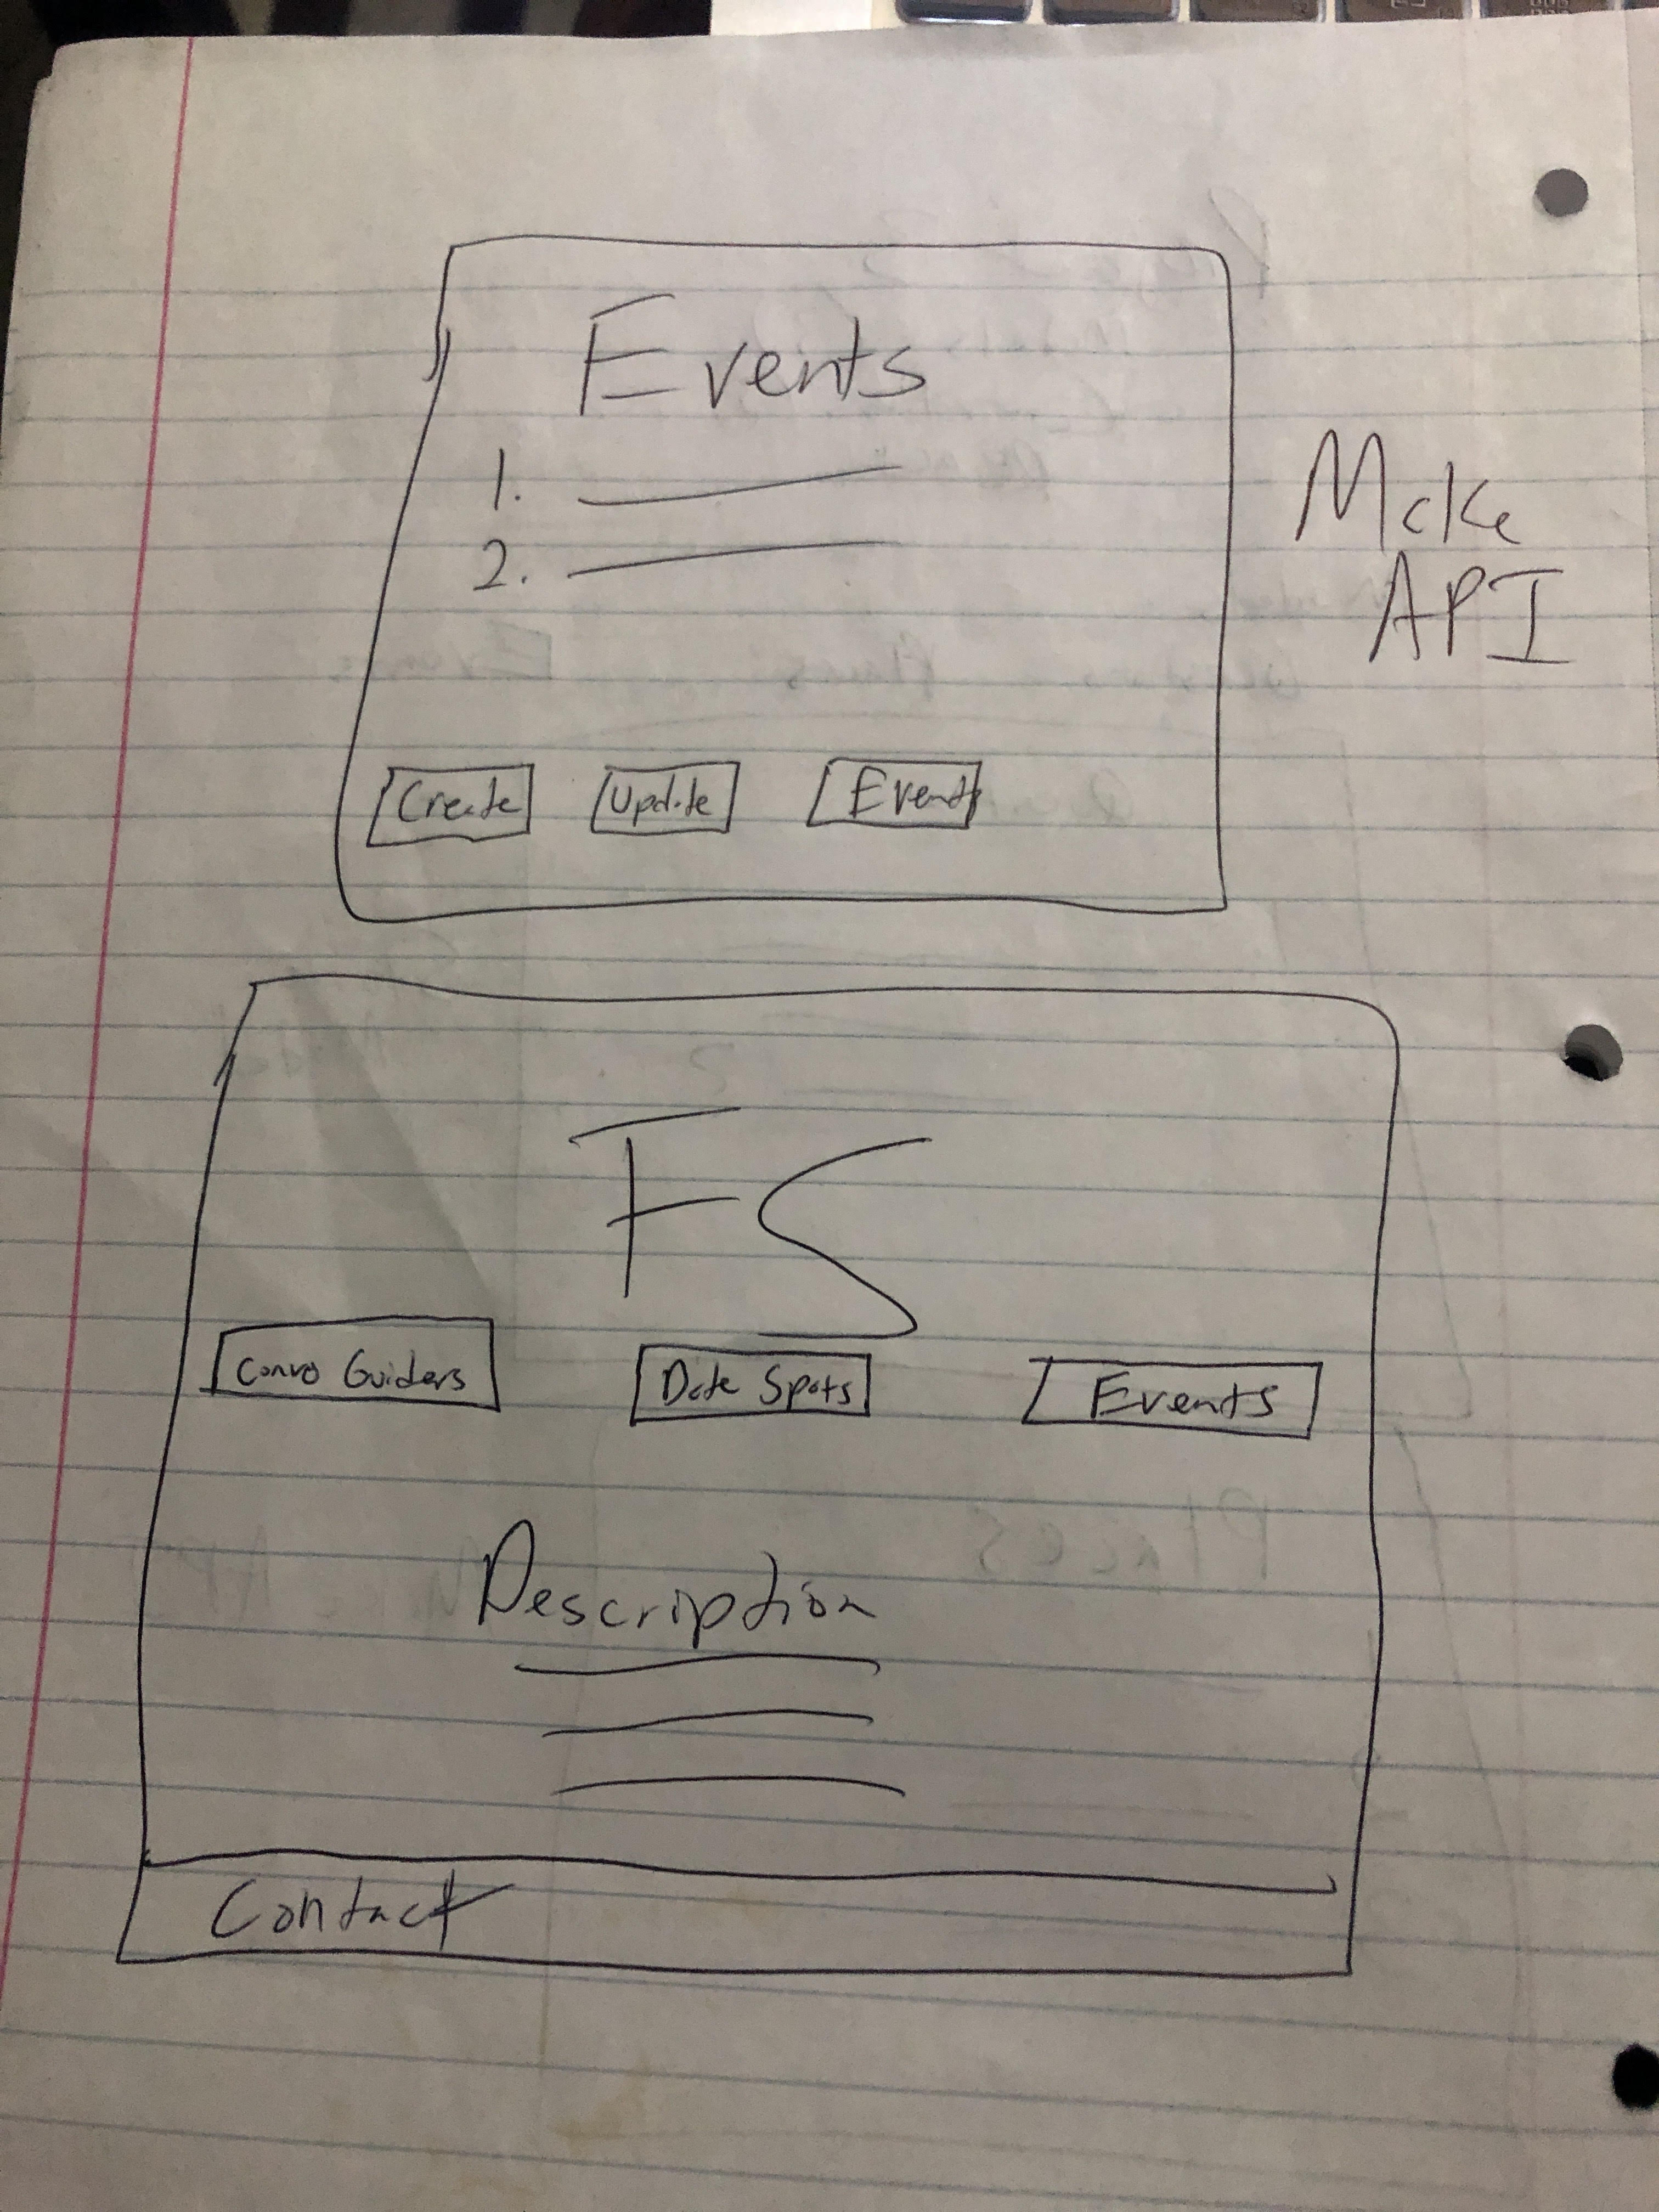 Events
1.
2.
Make
API
Create Update Events
FS
Convo Guiders Date Spots Events
Description
Contact